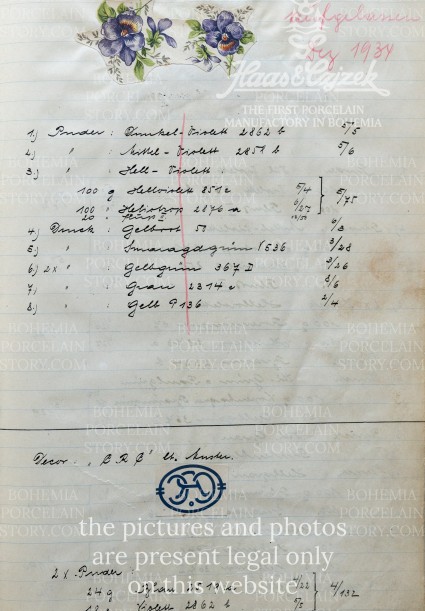 aufgebaut
Dez 1934
Haas & Czjzek
THE FIRST PORCELAIN
MANUFACTORY IN BOHEMIA
1.) Puder : Dunkel-Violett 2862 b 5/5
2.) " Mittel-Violett 2851 b 5/6
3.) " Hell-Violett :
100 g Hellviolett 851 c 5/4 5/75
100 " Heliotrop 2876 a 6/27
20
4.) Druck : Gelbrot 51 6/3
5.) " Smaragdgrün 536 3/28
6.) 2x " Gelbgrün 367 II 3/26
7.) " Grau 2314 c 3/6
8.) " Gelb 9136 2/4
BOHEMIA
PORCELAIN
STORY.COM
Decor. lt. Muster.
the pictures and photos
are present legal only
on this website
2 x Puder :
24 g 4/22 4/132
18 g Violett 2862 b 5/5